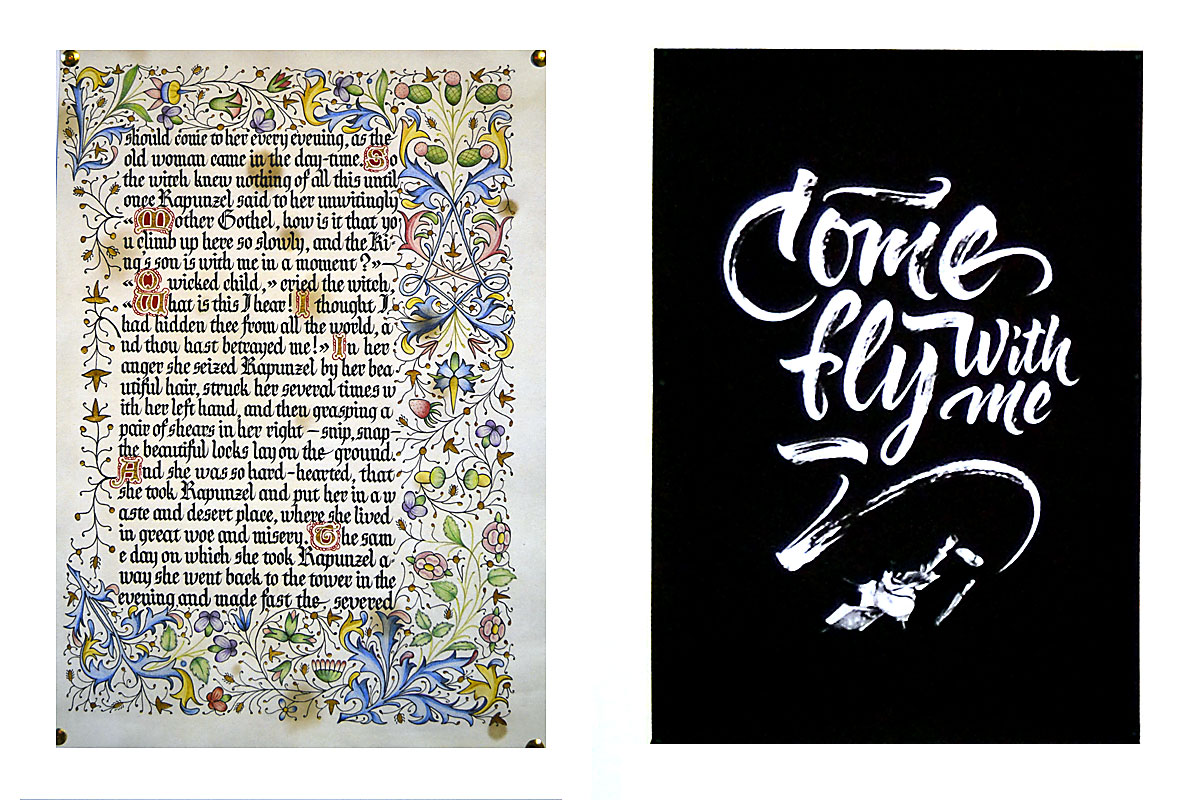 should come to her every evening, as the
old woman came in the day-time. So
the witch knew nothing of all this until
once Rapunzel said to her unwitingly
«Mother Gothel, how is it that yo
u climb up here so slowly, and the Ki-
ng's son is with me in a moment?»
«O wicked child,» cried the witch,
«What is this I hear! I thought I
had hidden thee from all the world, a
nd thou hast betrayed me!» In her
anger she seized Rapunzel by her bea
utiful hair, struck her several times w
ith her left hand, and then grasping a
pair of shears in her right – snip, snap –
the beautiful locks lay on the ground.
And she was so hard-hearted, that
she took Rapunzel and put her in a w
aste and desert place, where she lived
in great woe and misery. The sam
e day on which she took Rapunzel a
way she went back to the tower in the
evening and made fast the severed
Come
fly with
me